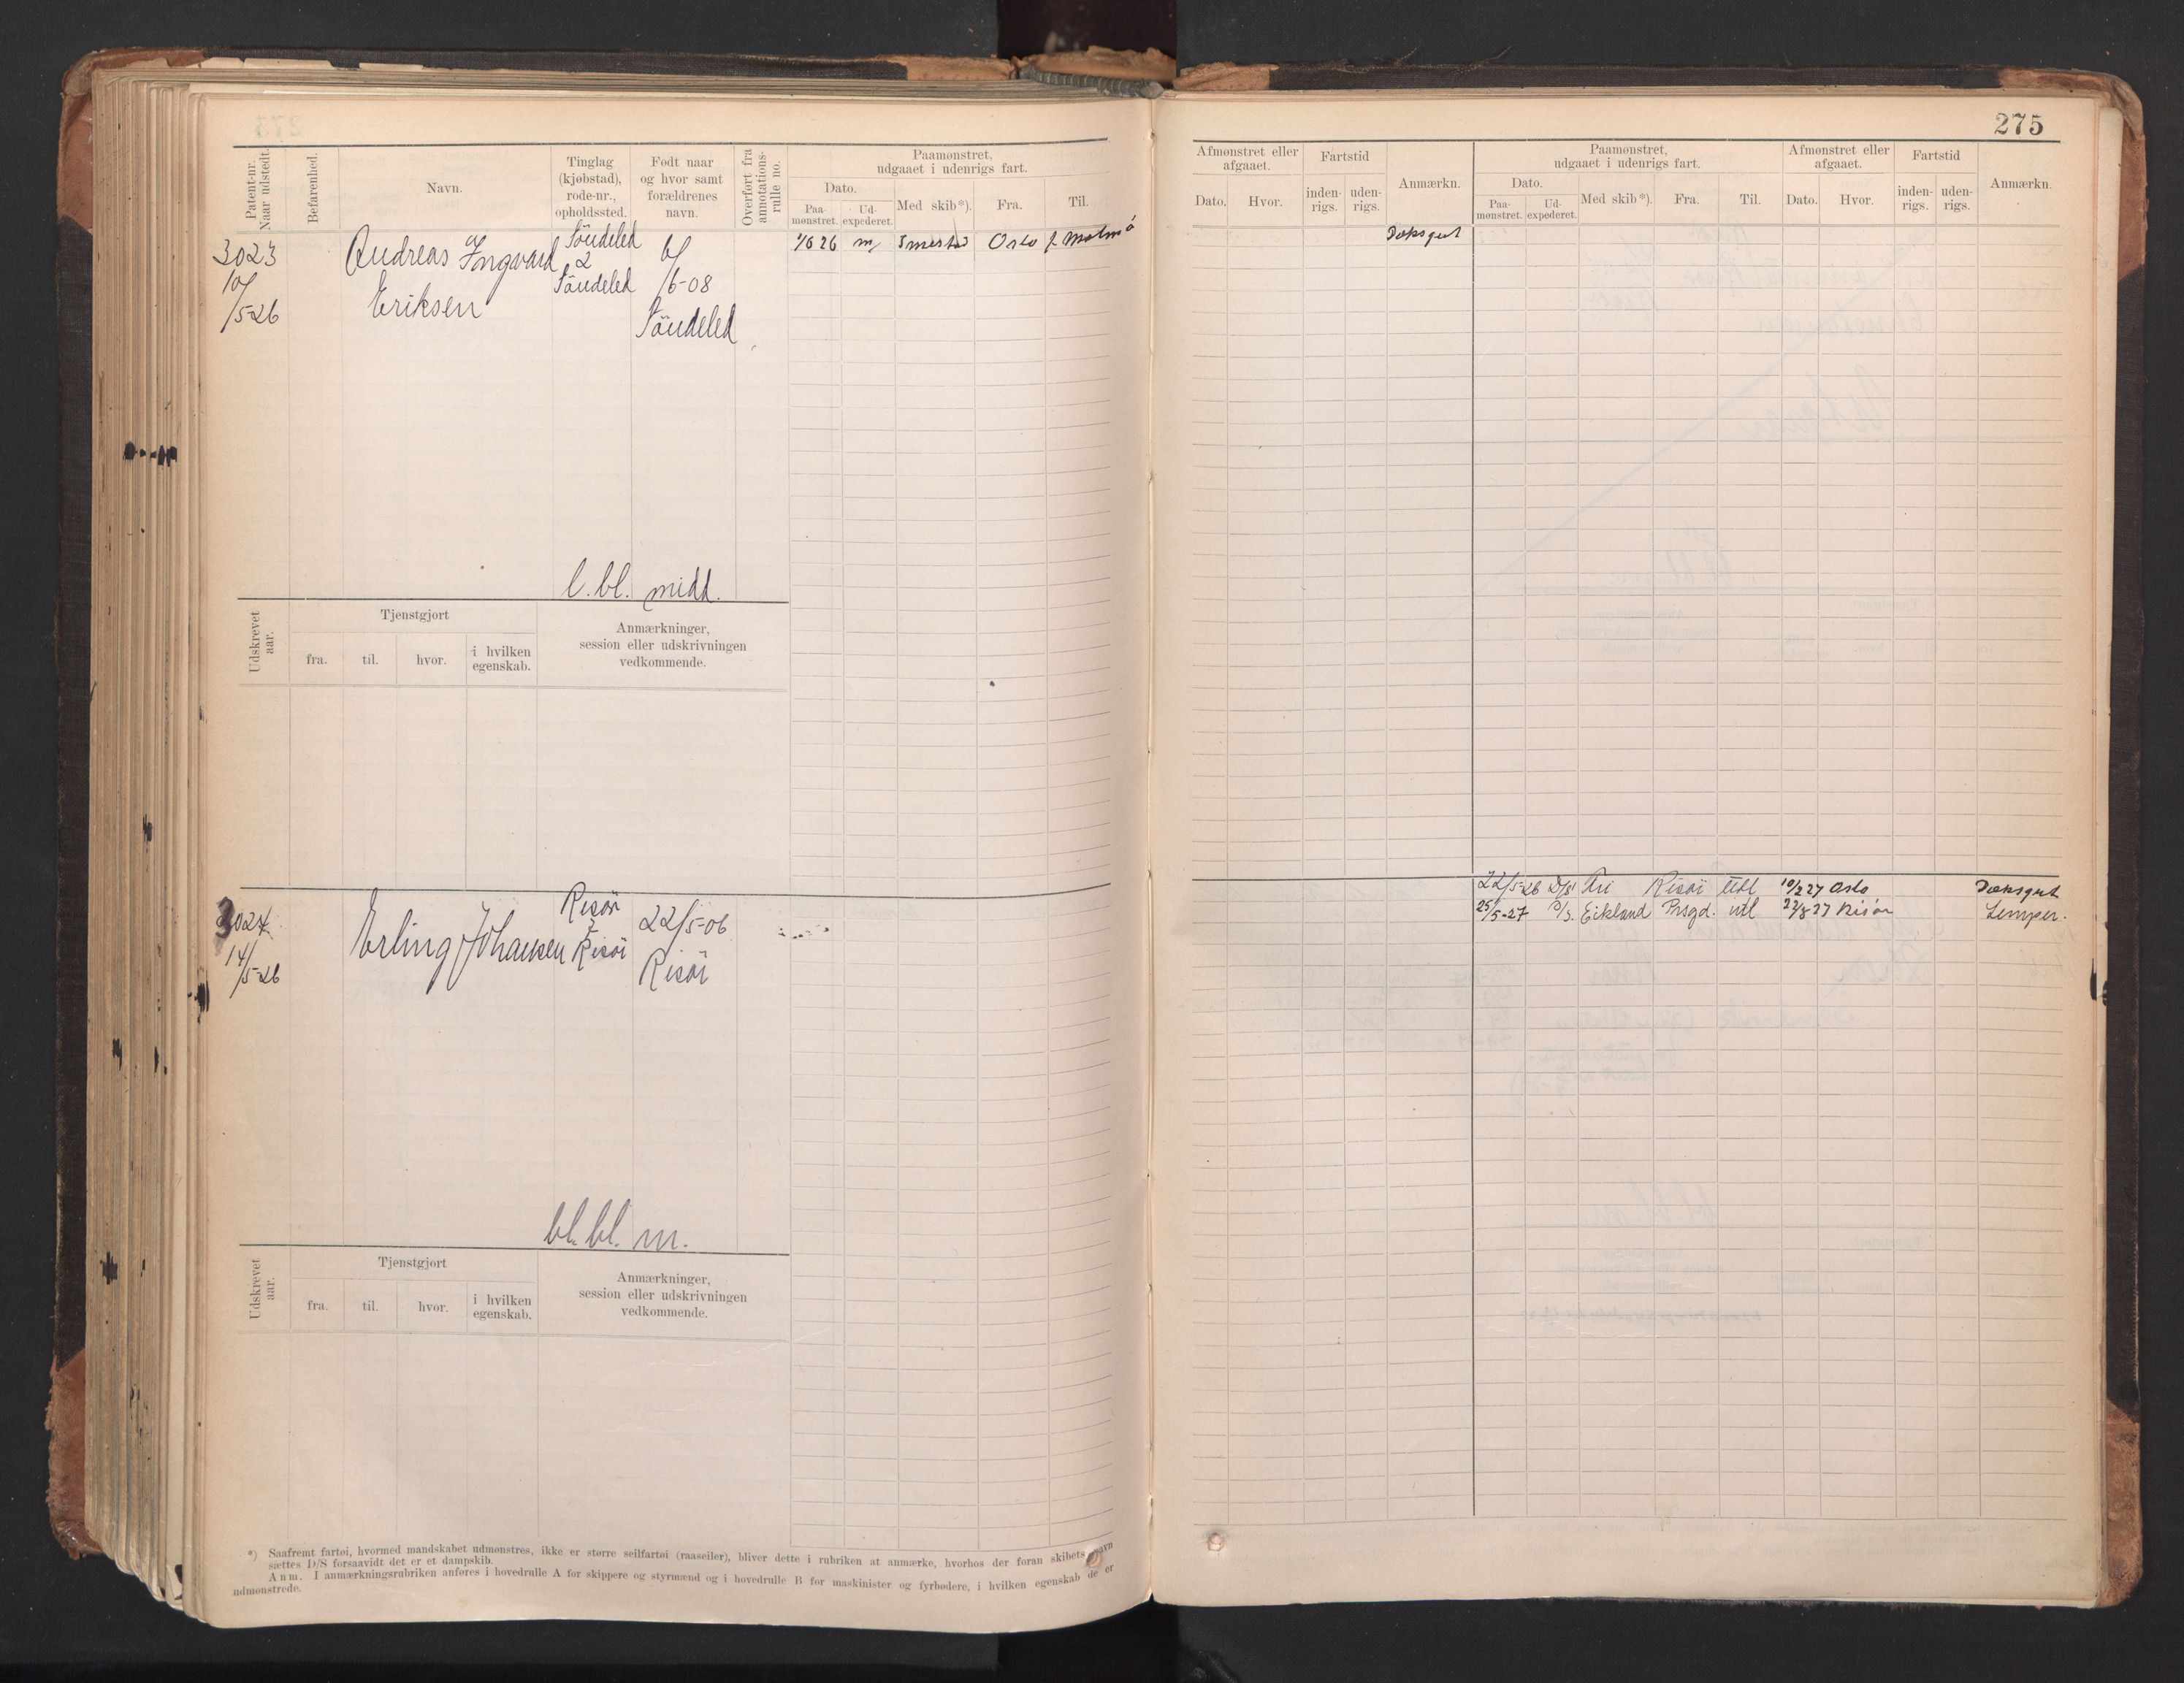 275
Patent-nr. Naar udstedt.
Befarenhed.
Navn.
Tinglag (kjøbstad), rode-nr., opholdssted.
Født naar og hvor samt forældrenes navn.
Overført fra annotations-rulle no.
Paamønstret, udgaaet i udenrigs fart.
Dato.
Paa-mønstret.
Ud-expederet.
Med skib*).
Fra.
Til.
Afmønstret eller afgaaet.
Dato.
Hvor.
Fartstid
inden-rigs.
uden-rigs.
Anmærkn.
Paamønstret, udgaaet i udenrigs fart.
Dato.
Paa-mønstret.
Ud-expederet.
Med skib*).
Fra.
Til.
Afmønstret eller afgaaet.
Dato.
Hvor.
Fartstid
inden-rigs.
uden-rigs.
Anmærkn.
3023
10/5-26
Andreas Ingvard
Eriksen
Söndeled
2
Söndeled
6/6-08
Söndeled
1/6 26 m/ Smestad Oslo f. Malmö
Dæksgut
l. bl. midd.
Udskrevet aar.
Tjenstgjort
fra.
til.
hvor.
i hvilken egenskab.
Anmærkninger, session eller udskrivningen vedkommende.
3024
14/5-26
Erling Johansen
Risör
Risör
22/5-06
Risör
22/5-26 D/S Risör Utl 10/2 27 Oslo Dæksgut
25/5-27 D/S. Eikland Prsgd. utl 22/8 27 Risör Lemper.
bl. bl. m.
Udskrevet aar.
Tjenstgjort
fra.
til.
hvor.
i hvilken egenskab.
Anmærkninger, session eller udskrivningen vedkommende.
*) Saafremt fartøi, hvormed mandskabet udmønstres, ikke er større seilfartøi (raaseiler), bliver dette i rubriken at anmærke, hvorhos der foran skibets navn
sættes D/S forsaavidt det er et dampskib.
Anm. I anmærkningsrubriken anføres i hovedrulle A for skippere og styrmænd og i hovedrulle B for maskinister og fyrbødere, i hvilken egenskab de er
udmønstrede.